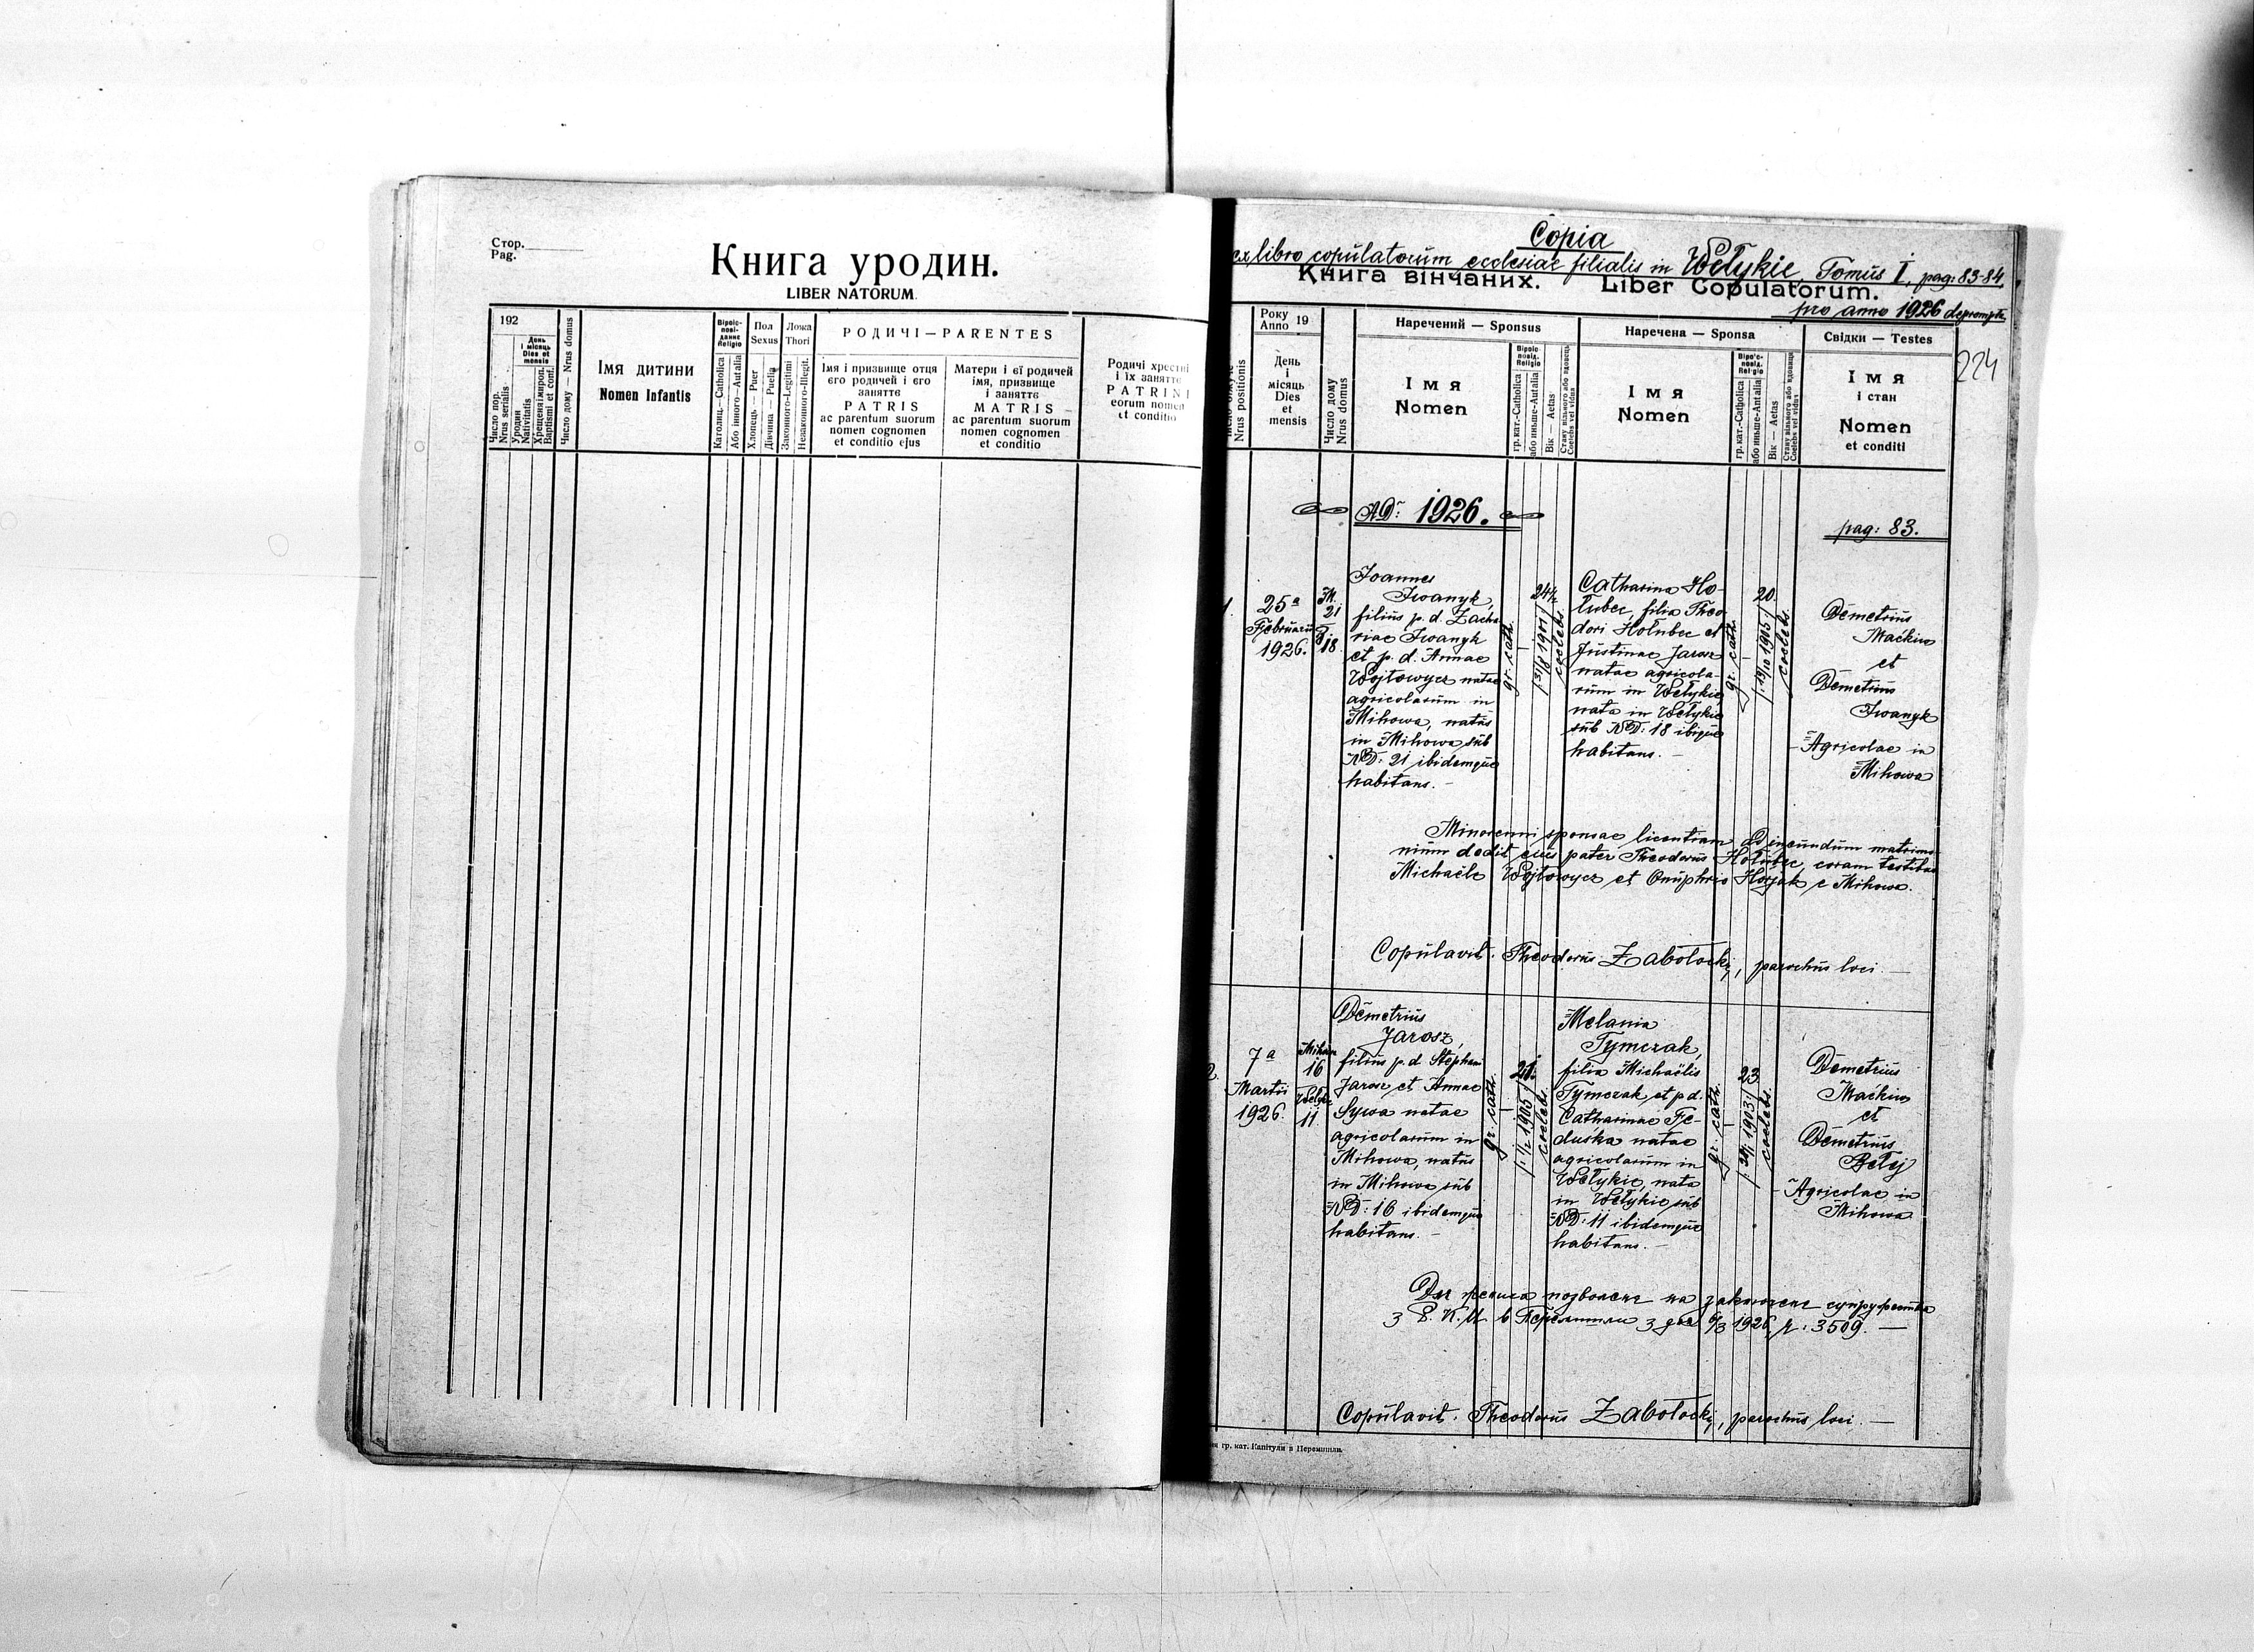 Стор.
Pag.
Книга уродин.
LIBER NATORUM.
192
Число пор.
Nrus serialis
День
і місяць
Dies et
mensis
Уродин
Nativitatis
Хрещеня і миропом.
Baptismi et conf.
Число дому — Nrus domus
Імя дитини
Nomen Infantis
Віроіс-
пові-
данє
Religio
Католиц.—Catholica
Або іншого—Aut alia
Пол
Sexus
Хлопець — Puer
Дівчина — Puella
Ложа
Thori
Законного-Legitimi
Незаконного-Illegit.
РОДИЧІ — PARENTES
Імя і призвище отця
єго родичей і єго
занятте
PATRIS
ac parentum suorum
nomen cognomen
et conditio ejus
Матери і єї родичей
імя, призвище
і занятте
MATRIS
ac parentum suorum
nomen cognomen
et conditio
Родичі хрестні
і їх занятте
PATRINI
eorum nomen
et conditio
Copia
ex libro copulatorum ecclesiae filialis in Wełykie, Tomus I, pag: 83-84,
Книга вінчаних. Liber Copulatorum.
pro anno 1926 deprompta
224
Nrus positionis
Року
Anno 19
День
і
місяць
Dies
et
mensis
Число дому
Nrus domus
Наречений — Sponsus
Імя
Nomen
Віроіс-
повід.
Religio
гр. кат.-Catholica
або иньше-Aut alia
Вік — Aetas
Стану вільного або вдовець
Coelebs vel viduus
Наречена — Sponsa
Імя
Nomen
Віроіс-
повід.
Religio
гр. кат.-Catholica
або иньше-Aut alia
Вік — Aetas
Стану вільного або вдовиця
Coelebs vel vidua
Свідки — Testes
Імя
і стан
Nomen
et conditi
AD: 1926.
pag: 83.
1.
25a
Februarii
1926.
M.
21
18.
Joannes
Iwanyk,
filius p. d. Zacha-
riae Iwanyk
et p. d. Annae
Wojtowycz natae
agricolarum in
Mihowa, natus
in Mihowa sub
ND: 21 ibidemque
habitans. —
gr. cath.
24½
/: 31/8 1901 :/
coelebs.
Catharina Ho-
łubec, filia Theo-
dori Hołubec et
Justinae Jarosz
natae agricola-
rum in Wełykie,
nata in Wełykie
sub ND: 18 ibique
habitans. —
gr. cath.
20.
/: 19/10 1905 :/
coelebs.
Demetrius
Maćkiw
et
Demetrius
Iwanyk
- Agricolae in
Mihowa
Minorenni sponsae licentiam ad ineundum matrimo-
nium dedit eius pater Theodorus Hołubec coram testibus
Michaële Wojtowycz et Onuphrio Horjak e Mihowa.
Copulavit: Theodorus Zabołockij, parochus loci. —
2.
7a
Martii
1926.
Mihowa
16
Wełykie
11.
Demetrius
Jarosz,
filius p. d. Stephani
Jarosz et Annae
Sywa natae
agricolarum in
Mihowa, natus
in Mihowa sub
ND: 16 ibidemque
habitans. —
gr. cath.
21.
coelebs.
Melania
Tymczak,
filia Michaëlis
Tymczak et p. d.
Catharinae Fe-
duśka natae
agricolarum in
Wełykie, nata
in Wełykie sub
ND: 11 ibidemque
habitans. —
gr. cath.
23.
coelebs.
Demetrius
Maćkiw
et
Demetrius
Bełej
- Agricolae in
Mihowa
позволенє на заключенє супружества
з Е. К. И. в Перемишли з дня 6/3 1926, ч: 3509. —
Copulavit: Theodorus Zabołockij, parochus loci. —
гр. кат. Капітули в Перемишли.